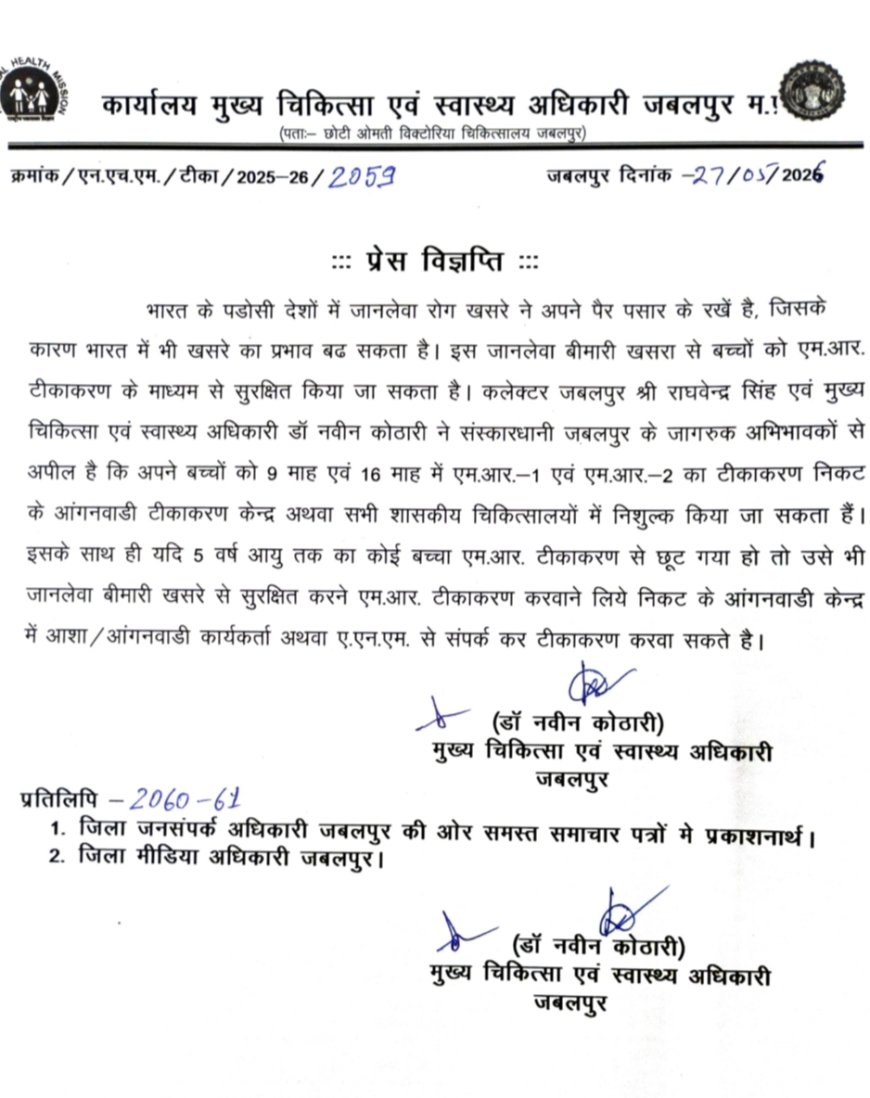 HEALTH MISSION
कार्यालय मुख्य चिकित्सा एवं स्वास्थ्य अधिकारी जबलपुर म.
(पताः– छोटी ओमती विक्टोरिया चिकित्सालय जबलपुर)
क्रमांक/एन.एच.एम./टीका/2025–26/2059 जबलपुर दिनांक –27/05/2026
::: प्रेस विज्ञप्ति :::
भारत के पडोसी देशों में जानलेवा रोग खसरे ने अपने पैर पसार के रखें है, जिसके
कारण भारत में भी खसरे का प्रभाव बढ सकता है। इस जानलेवा बीमारी खसरा से बच्चों को एम.आर.
टीकाकरण के माध्यम से सुरक्षित किया जा सकता है। कलेक्टर जबलपुर श्री राघवेन्द्र सिंह एवं मुख्य
चिकित्सा एवं स्वास्थ्य अधिकारी डॉ नवीन कोठारी ने संस्कारधानी जबलपुर के जागरुक अभिभावकों से
अपील है कि अपने बच्चों को 9 माह एवं 16 माह में एम.आर.–1 एवं एम.आर.–2 का टीकाकरण निकट
के आंगनवाडी टीकाकरण केन्द्र अथवा सभी शासकीय चिकित्सालयों में निशुल्क किया जा सकता हैं।
इसके साथ ही यदि 5 वर्ष आयु तक का कोई बच्चा एम.आर. टीकाकरण से छूट गया हो तो उसे भी
जानलेवा बीमारी खसरे से सुरक्षित करने एम.आर. टीकाकरण करवाने लिये निकट के आंगनवाडी केन्द्र
में आशा/आंगनवाडी कार्यकर्ता अथवा ए.एन.एम. से संपर्क कर टीकाकरण करवा सकते है।
(डॉ नवीन कोठारी)
मुख्य चिकित्सा एवं स्वास्थ्य अधिकारी
जबलपुर
प्रतिलिपि – 2060-61
1. जिला जनसंपर्क अधिकारी जबलपुर की ओर समस्त समाचार पत्रों मे प्रकाशनार्थ।
2. जिला मीडिया अधिकारी जबलपुर।
(डॉ नवीन कोठारी)
मुख्य चिकित्सा एवं स्वास्थ्य अधिकारी
जबलपुर